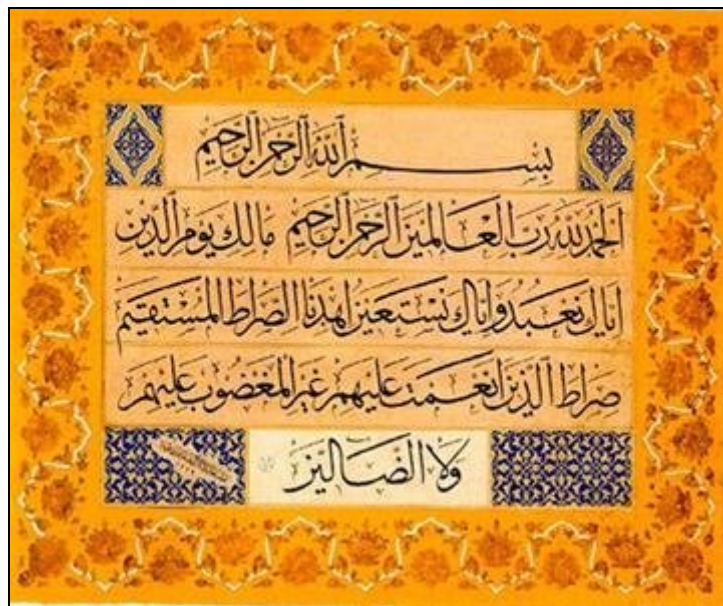 بِسْمِ ٱللَّهِ ٱلرَّحْمٰنِ ٱلرَّحِيمِ
اَلْحَمْدُ لِلّٰهِ رَبِّ الْعَالَمِينَ الرَّحْمٰنِ الرَّحِيمِ مَالِكِ يَوْمِ الدِّينِ
اِيَّاكَ نَعْبُدُ وَاِيَّاكَ نَسْتَعِينُ اِهْدِنَا الصِّرَاطَ الْمُسْتَقِيمَ
صِرَاطَ الَّذِينَ اَنْعَمْتَ عَلَيْهِمْ غَيْرِ الْمَغْضُوبِ عَلَيْهِمْ
وَلَا الضَّالِّينَ